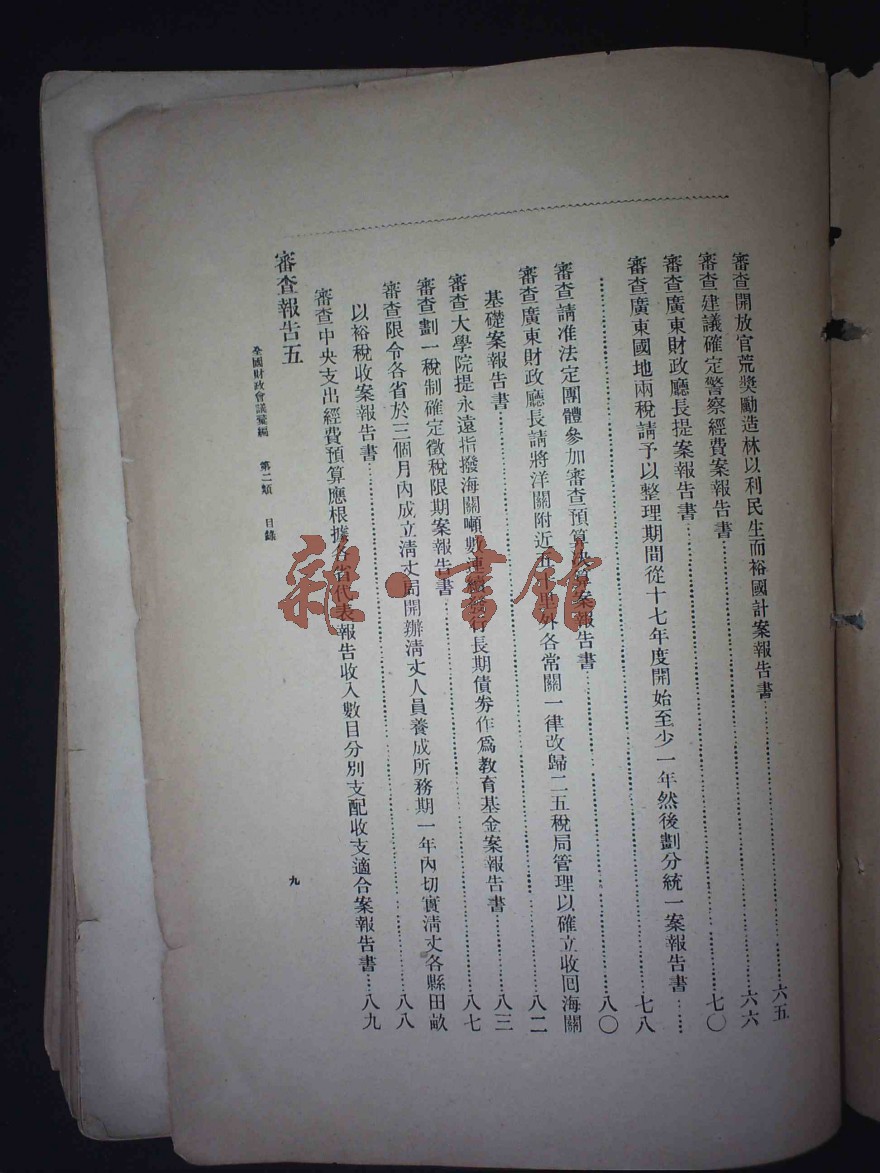 審查開放官荒獎勵造林以利民生而裕國計案報告書……六五
審查建議確定警察經費案報告書……六六
審查廣東財政廳長提案報告書……七〇
審查廣東國地兩稅請予以整理期間從十七年度開始至少一年然後劃分統一案報告書……
……七八
審查請准法定團體參加審查預算決算案報告書……八〇
審查廣東財政廳長請將洋關附近五十里外各常關一律改歸二五稅局管理以確立收回海關
基礎案報告書……八二
審查大學院提永遠指撥海關噸數連續發行長期債券作爲教育基金案報告書……八三
審查劃一稅制確定徵稅限期案報告書……八七
審查限令各省於三個月內成立清丈局開辦清丈人員養成所務期一年內切實清丈各縣田畝
以裕稅收案報告書……八八
審查中央支出經費預算應根據各省代表報告收入數目分別支配收支適合案報告書……八九
審查報告五
全國財政會議彙編 第二類 目錄
九
雜·書館